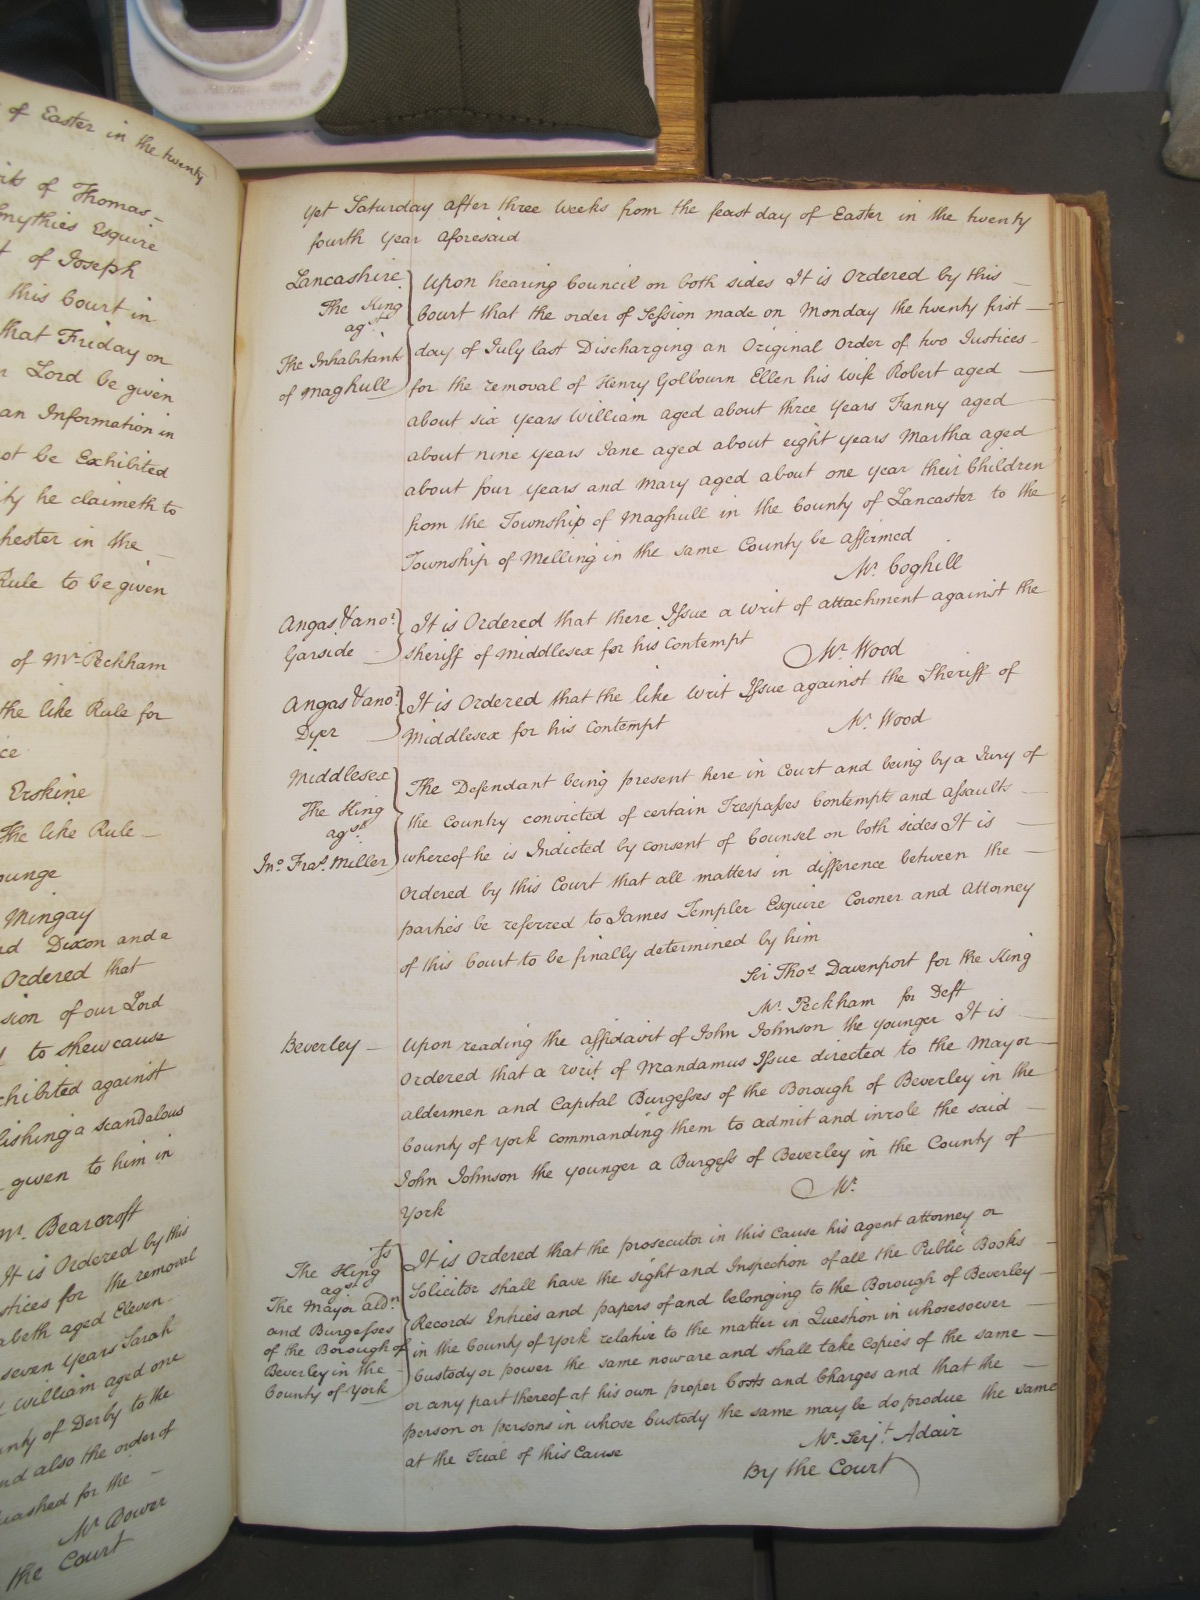 of Easter in the twenty
of Thomas
Smythies Esquire
of Joseph
this Court in
that Friday on
Lord be given
an Information in
not be Exhibited
he claimeth to
in the
Rule to be given
of Mr. Peckham
the like Rule for
Erskine
The like Rule
Mingay
Dixon and a
Ordered that
of our Lord
to shew cause
exhibited against
a scandalous
given to him in
Mr. Bearcroft
It is Ordered by this
for the removal
aged Eleven
seven years Sarah
William aged one
of Derby to the
and also the order of
quashed for the
Mr. Bower
the Court
Yet Saturday after three weeks from the feast day of Easter in the twenty
fourth Year aforesaid
Lancashire
The King
agst.
The Inhabitants
of Maghull
Upon hearing Council on both sides It is Ordered by this
Court that the order of Session made on Monday the twenty first
day of July last Discharging an Original Order of two Justices
for the removal of Henry Golbourn Ellen his wife Robert aged
about six years William aged about three years Fanny aged
about nine years Jane aged about eight years Martha aged
about four years and Mary aged about one year their Children
from the Township of Maghull in the County of Lancaster to the
Township of Melling in the same County be affirmed
Mr. Coghill
Angas & anor.
Garside
It is Ordered that there Issue a writ of attachment against the
sheriff of Middlesex for his Contempt
Mr. Wood
Angas & anor.
Dyer
It is Ordered that the like writ Issue against the Sheriff of
Middlesex for his Contempt
Mr. Wood
Middlesex
The King
agst.
Jno. Fras. Miller
The Defendant being present here in Court and being by a Jury of
the Country convicted of certain Trespasses Contempts and assaults
whereof he is Indicted by consent of Counsel on both sides It is
Ordered by this Court that all matters in difference between the
parties be referred to James Templer Esquire Coroner and Attorney
of this Court to be finally determined by him
Sir Thos. Davenport for the King
Mr. Peckham for Deft
Beverley
Upon reading the affidavit of John Johnson the younger It is
Ordered that a writ of Mandamus Issue directed to the Mayor
aldermen and Capital Burgesses of the Borough of Beverley in the
County of York commanding them to admit and inrole the said
John Johnson the younger a Burgess of Beverley in the County of
York
Mr.
The King
agst.
The Mayor aldn.
and Burgesses
of the Borough of
Beverley in the
County of York
It is Ordered that the prosecutor in this Cause his agent attorney or
Solicitor shall have the sight and Inspection of all the Public Books
Records Entries and papers of and belonging to the Borough of Beverley
in the County of York relative to the matter in Question in whosesoever
Custody or power the same now are and shall take Copies of the same
or any part thereof at his own proper Costs and Charges and that the
person or persons in whose Custody the same may be do produce the same
at the Trial of this Cause
Mr. Serjt. Adair
By the Court